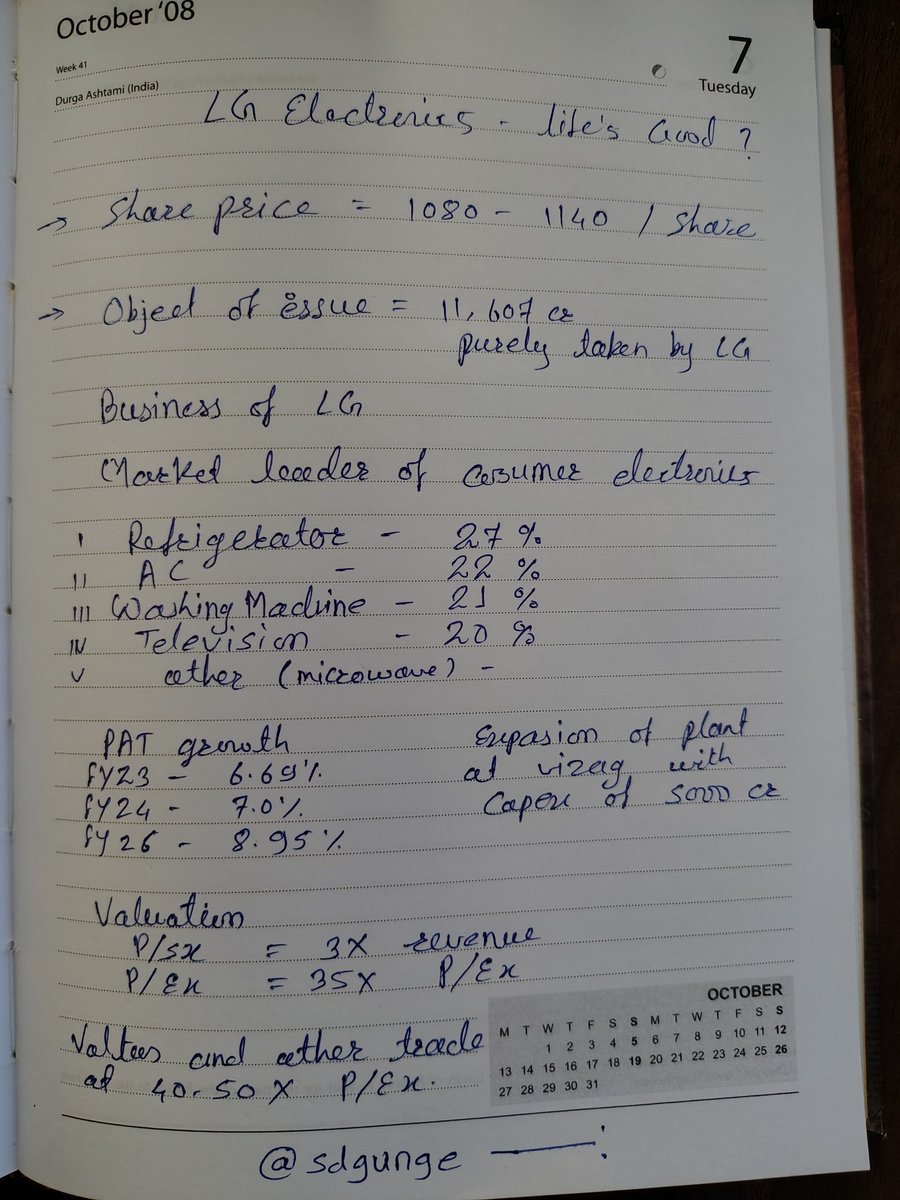 October '08
Week 41
7
Tuesday
Durga Ashtami (India)
LG Electronics - life's Good ?
→ Share price = 1080 - 1140 / Share
→ Object of issue = 11,607 cr
purely taken by LG
Business of LG
Market leader of Cosumer electronics
I Refrigerator - 27 %
II AC - 22 %
III Washing Machine - 21 %
IV Television - 20 %
V other (microwave) -
PAT growth
FY23 - 6.69%
FY24 - 7.0%
FY26 - 8.95%
Expasion of plant
at vizag with
Capex of 5000 cr
Valuation
P/sx = 3X revenue
P/Ex = 35X P/Ex
Voltas and other trade
at 40-50 X P/Ex.
OCTOBER
M T W T F S S M T W T F S S
1 2 3 4 5 6 7 8 9 10 11 12
13 14 15 16 17 18 19 20 21 22 23 24 25 26
27 28 29 30 31
@sdgunge